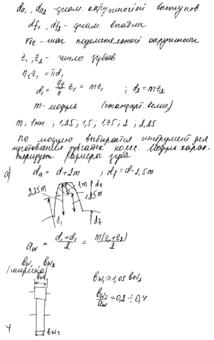 da₁, da₂ - диам окружностей выступов
df₁, df₂ - диам впадин
- шаг делительной окружности
z₁, z₂ - число зубьев
πd₁
z₁ = mz₁ ; d₂ = mz₂
m - модуль (стандарт. велич)
m, 1мм, 1,25, 1,5, 1,75, 2, 2,25
По модулю выбирается инструмент для
изготовления зубчатых колес. Модуль харак-
теризует размеры зуба
а) da = d+2m ; df = d-2,5m
2,25m
1m
1,25m
aw = d₁+d₂ / 2 = m(z₁+z₂) / 2
bw₁, bw₂
(ширина)
bw₁ = 1,05 bw₂
bw₂ / aw = 0,2 ÷ 0,4
bw₂
4